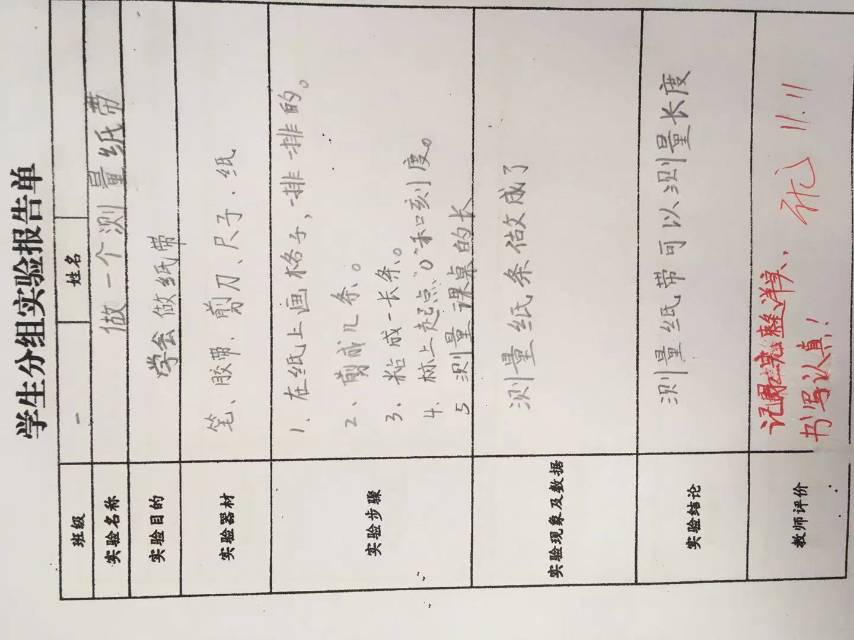 学生分组实验报告单
班级 一 姓名
实验名称 做一个测量纸带
实验目的 学会做纸带
实验器材 笔、胶带、剪刀、尺子、纸
实验步骤
1、在纸上画格子，一排一排的。
2、剪成几条。
3、粘成一长条。
4、标上起点“0”和刻度。
5 测量课桌的长
实验现象及数据 测量纸条做成了
实验结论 测量纸带可以测量长度
教师评价 记录完整详实，
书写认真！
11.11